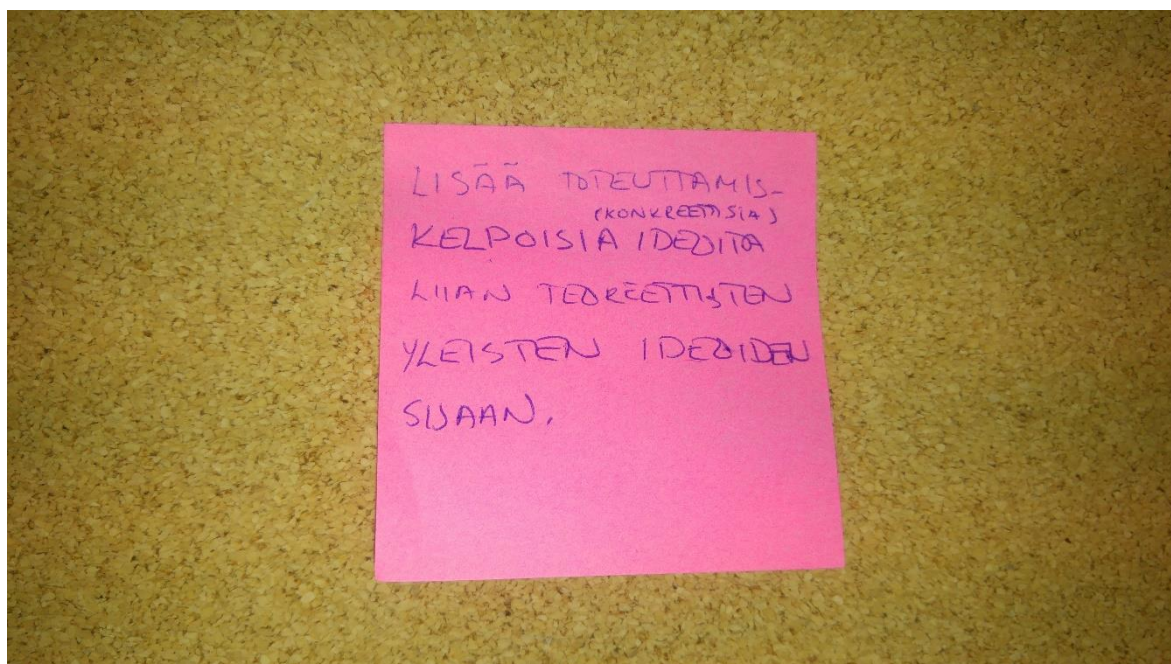 LISÄÄ TOTEUTTAMIS-
(KONKREETTISIA)
KELPOISIA IDEOITA
LIIAN TEOREETTISTEN
YLEISTEN IDEOIDEN
SIJAAN.